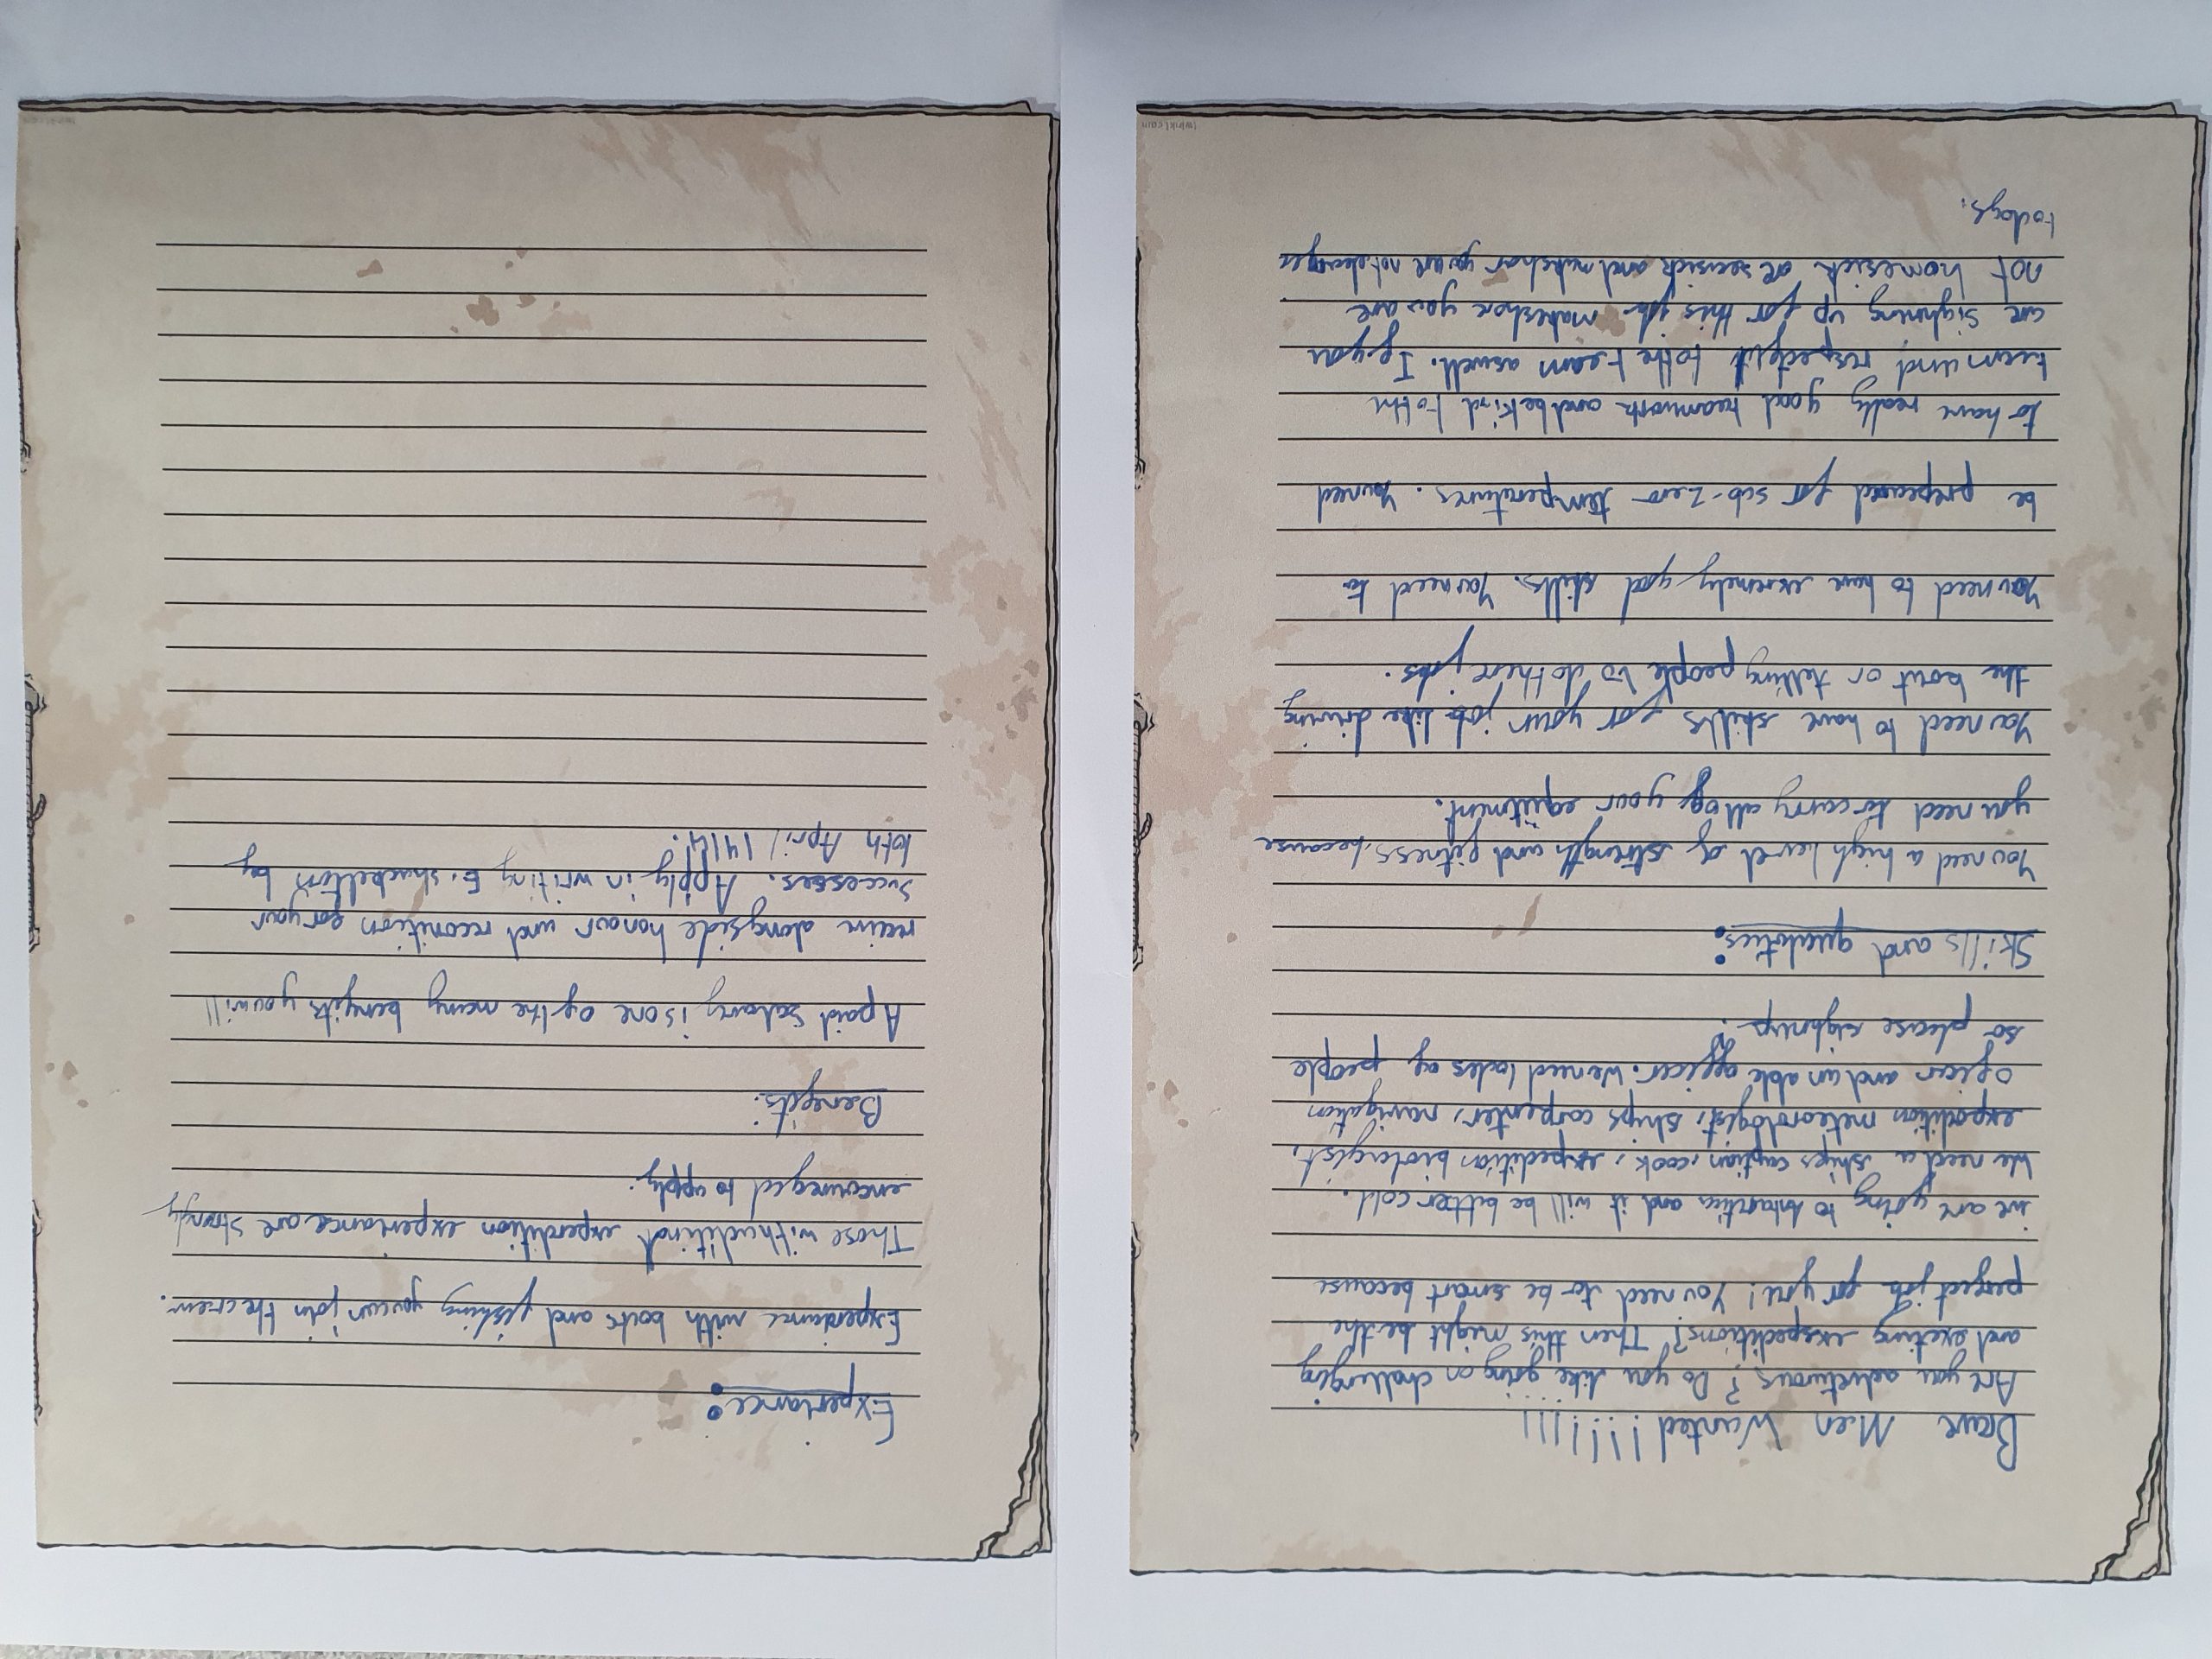 Brave Men Wanted!!!!!!!
Are you adveturous? Do you like going on challenging
and exeting exspeditions? Then this might be the
perfect job for you! You need to be smart because
we are going to Antartica and it will be bitter cold.
We need a ships caption, cook, expedition biologist,
expedition meteorologist, ships carpenter, navigation
oficer and an able officer. We need lodes of people
so please sighnup.
Skills and qualities:
You need a high level of strength and fitness, because
you need to carry all of your equitment.
You need to have skills for your job like driving
the boat or telling people to do there jobs.
You need to have exremely good skills. You need to
be prepeared for sub-zero temperatures. You need
to have really good teamwork and be kind to the
team and respectfull to the team aswell. If you
are sighning up for this job makeshore you are
not homesick or seasick and makeshor you are not
todogs.
Experiance:
Experiance with boats and fishing you can join the crew.
Those with expedition experiance are strongly
encouraged to apply.
Benefits:
A paid salary is one of the many benefits you will
receive alongside honour and reconition for your
successes. Apply in writing E. shackelton by
10th April 1914.
twinkl.com
twinkl.com